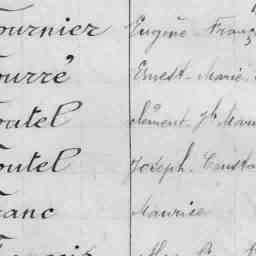 Fournier Eugène Franç
Fourré Ernest Marie
Foutel Clément Jh Marie
Foutel Joseph Consta
Franc Maurice